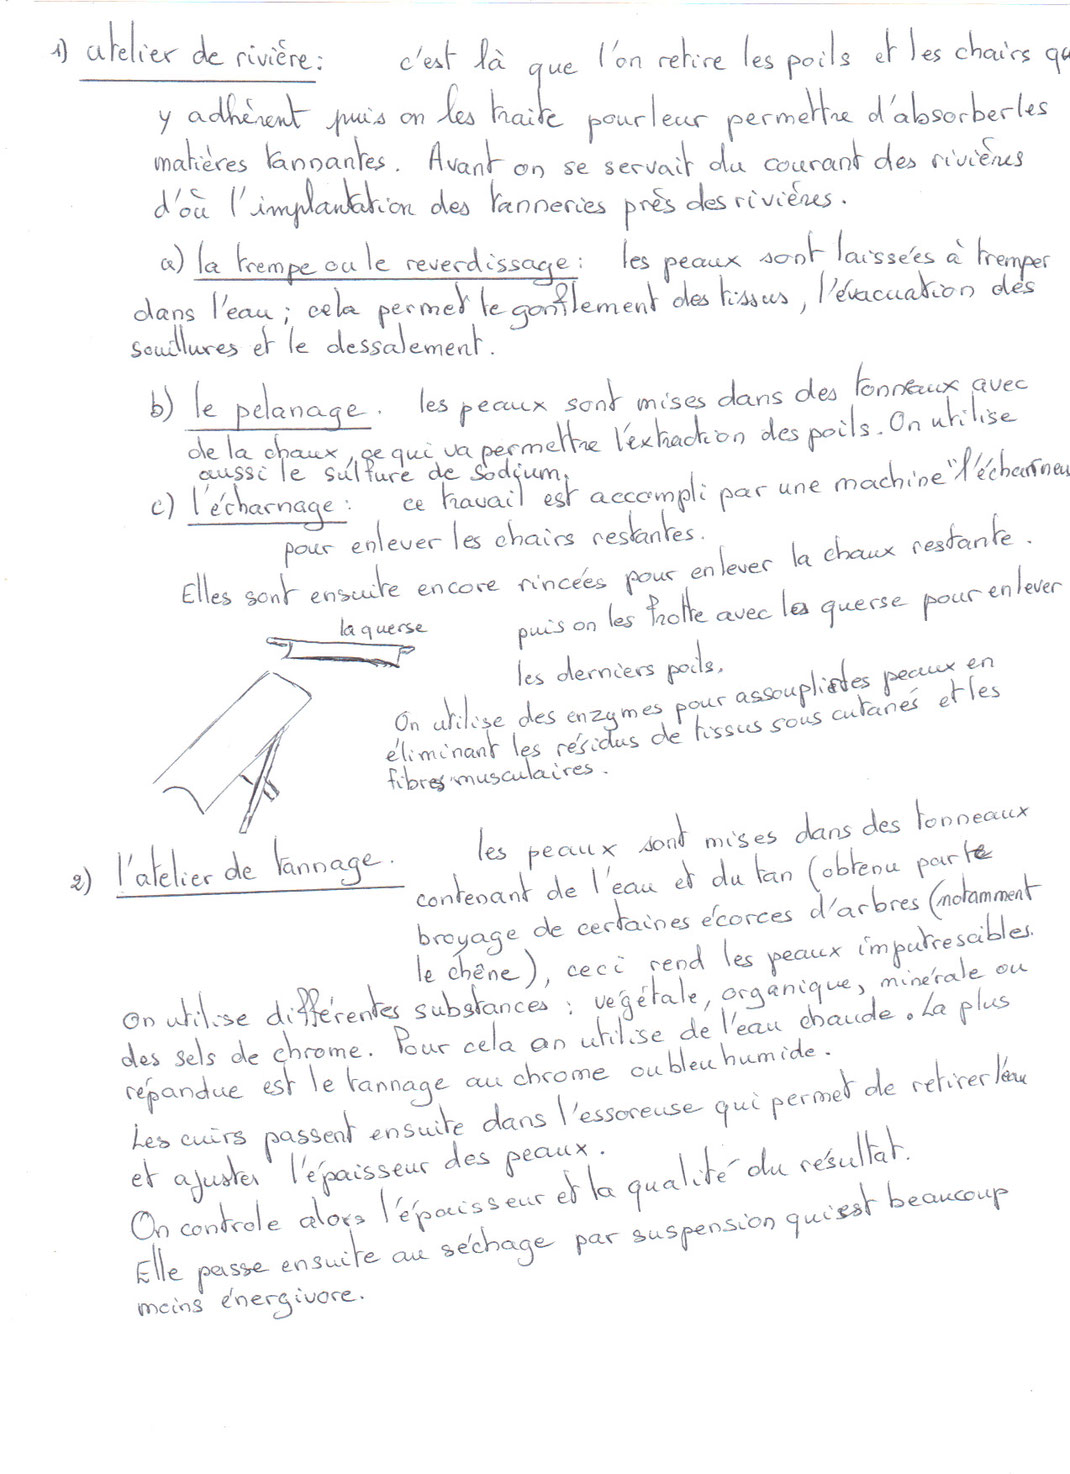 1) atelier de rivière : c'est là que l'on retire les poils et les chairs qu
y adhèrent puis on les traite pour leur permettre d'absorber les
matières tannantes. Avant on se servait du courant des rivières
d'où l'implantation des tanneries près des rivières.
a) la trempe ou le reverdissage : les peaux sont laissées à tremper
dans l'eau ; cela permet le gonflement des tissus, l'évacuation des
souillures et le dessalement.
b) le pelanage. les peaux sont mises dans des tonneaux avec
de la chaux, ce qui va permettre l'extraction des poils. On utilise
aussi le sulfure de sodium.
c) l'écharnage : ce travail est accompli par une machine "l'écharneu
pour enlever les chairs restantes.
Elles sont ensuite encore rincées pour enlever la chaux restante.
puis on les frotte avec la querse pour enlever
les derniers poils.
la querse
On utilise des enzymes pour assouplir les peaux en
éliminant les résidus de tissus sous cutanés et les
fibres musculaires.
2) l'atelier de tannage. les peaux sont mises dans des tonneaux
contenant de l'eau et du tan (obtenu par le
broyage de certaines écorces d'arbres (notamment
le chêne), ceci rend les peaux imputrescibles.
On utilise différentes substances : végétale, organique, minérale ou
des sels de chrome. Pour cela on utilise de l'eau chaude. La plus
répandue est le tannage au chrome ou bleu humide.
Les cuirs passent ensuite dans l'essoreuse qui permet de retirer l'eau
et ajuster l'épaisseur des peaux.
On controle alors l'épaisseur et la qualité du résultat.
Elle passe ensuite au séchage par suspension qui est beaucoup
moins énergivore.